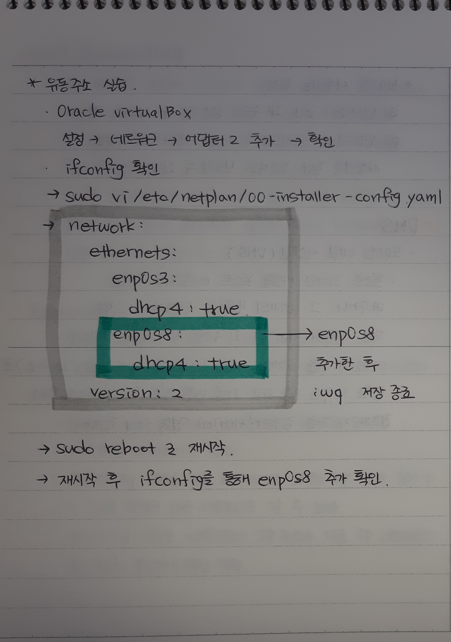 * 유동주소 실습.
· Oracle virtualBox
설정 → 네트워크 → 어댑터 2 추가 → 확인
· ifconfig 확인
→ sudo vi /etc/netplan/00-installer-config yaml
→ network:
ethernets:
enp0s3:
dhcp4: true
enp0s8: → enp0s8
dhcp4: true 추가한 후
version: 2 :wq 저장 종료
→ sudo reboot 로 재시작.
→ 재시작 후 ifconfig를 통해 enp0s8 추가 확인.